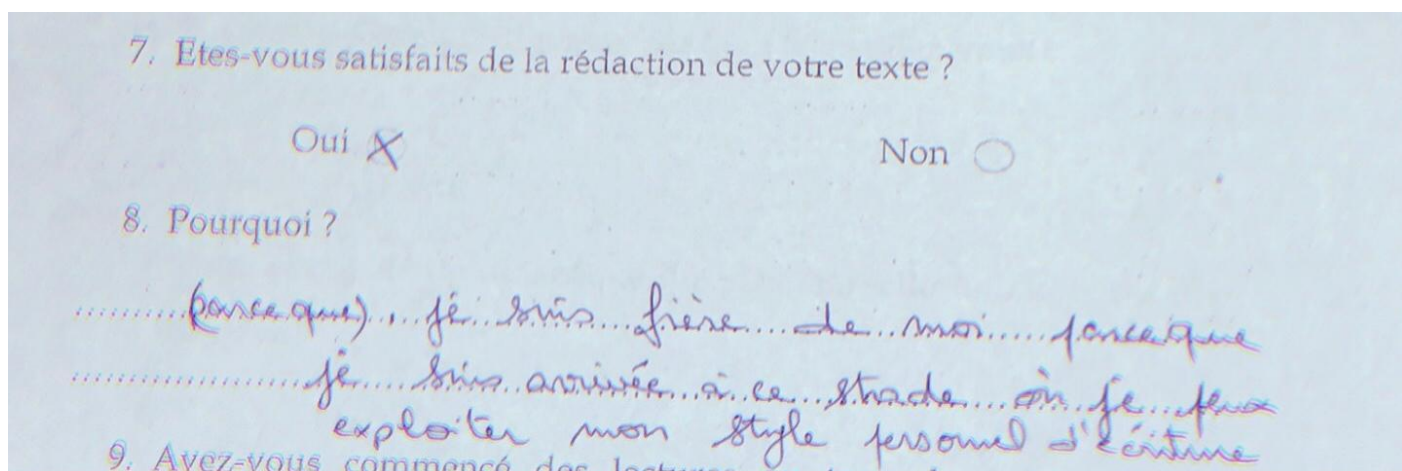 7. Etes-vous satisfaits de la rédaction de votre texte ?
Oui X Non
8. Pourquoi ?
(parceque), je suis fière de moi parceque
je suis arrivée à ce strade où je peux
exploiter mon style personnel d'écriture
9. Avez-vous commencé des lectures